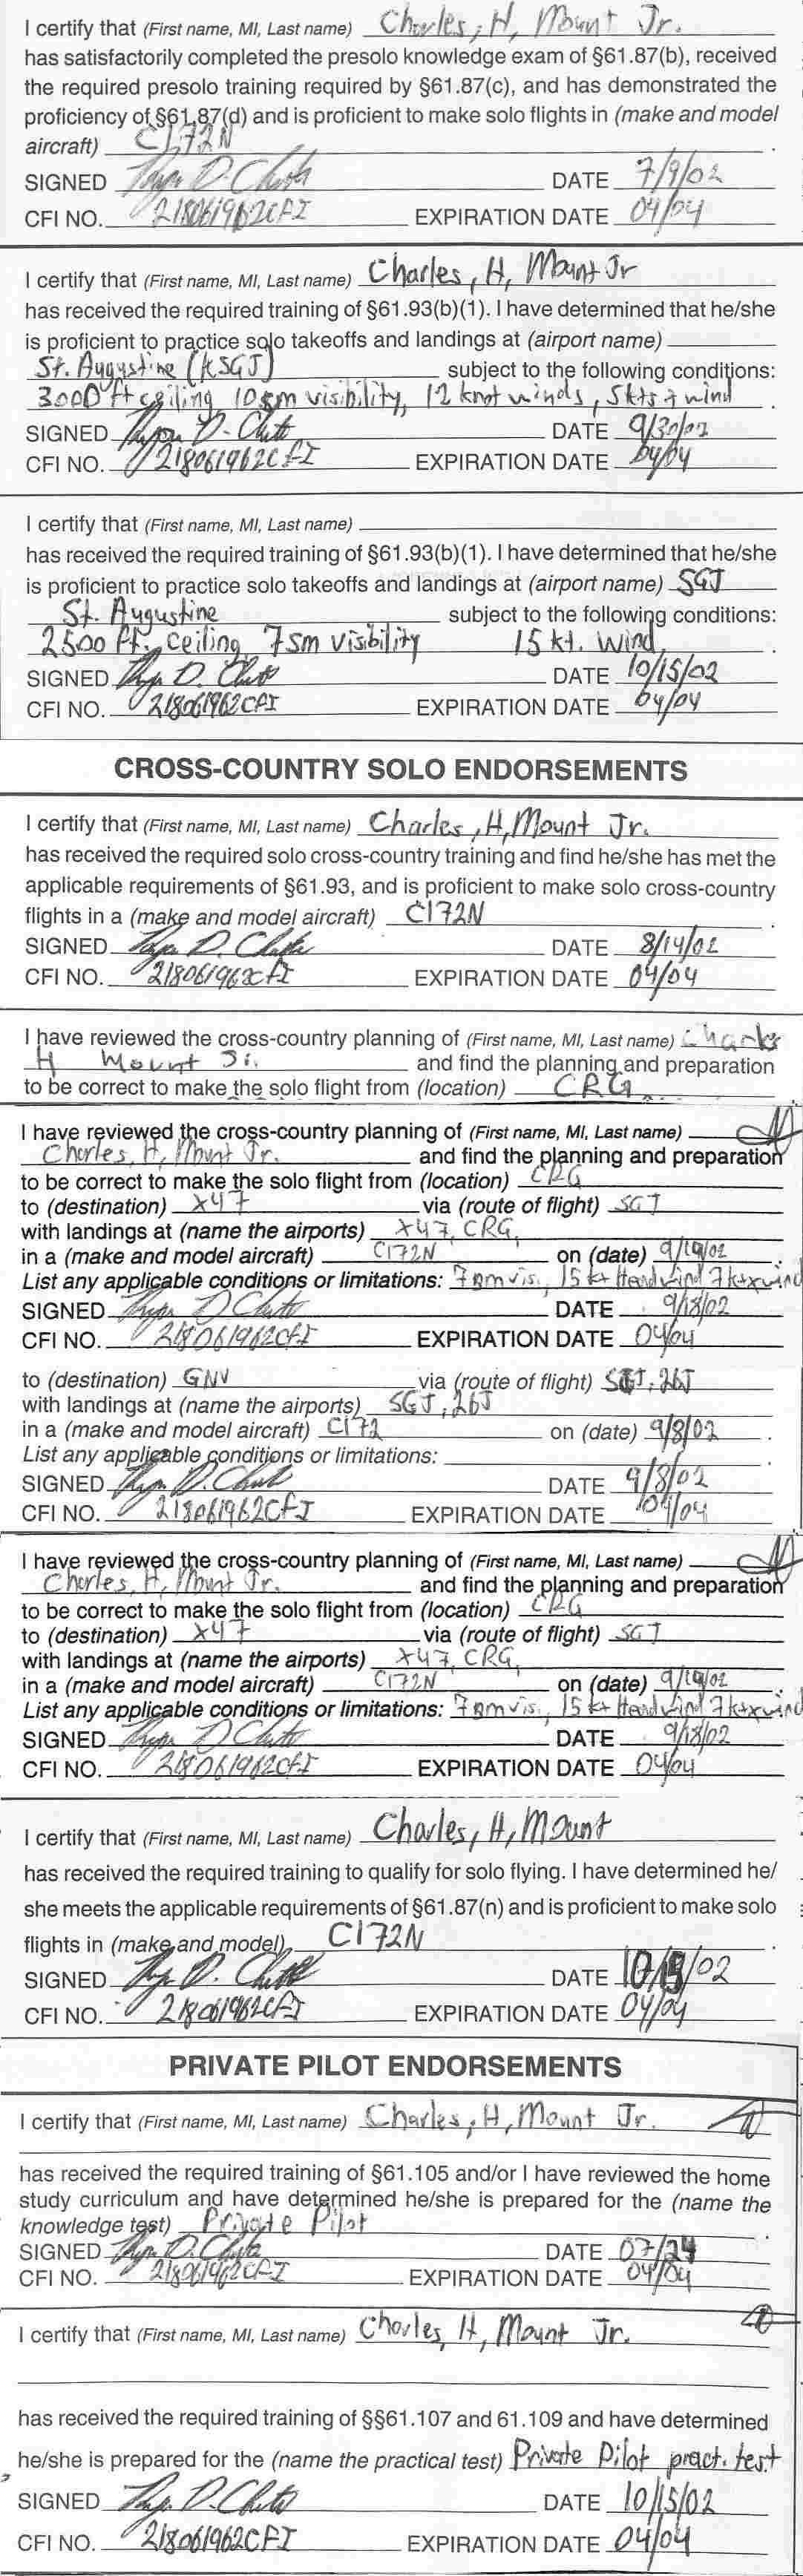 I certify that (First name, MI, Last name) Charles, H, Mount Jr.
has satisfactorily completed the presolo knowledge exam of §61.87(b), received
the required presolo training required by §61.87(c), and has demonstrated the
proficiency of §61.87(d) and is proficient to make solo flights in (make and model
aircraft) C172N
SIGNED DATE 7/9/02
CFI NO. 218061962CFI EXPIRATION DATE 04/04
I certify that (First name, MI, Last name) Charles, H, Mount Jr
has received the required training of §61.93(b)(1). I have determined that he/she
is proficient to practice solo takeoffs and landings at (airport name)
St. Augustine (KSGJ) subject to the following conditions:
3000 ft ceiling 10sm visibility, 12 knot winds, 5kts wind
SIGNED DATE 9/30/02
CFI NO. 218061962CFI EXPIRATION DATE 04/04
I certify that (First name, MI, Last name)
has received the required training of §61.93(b)(1). I have determined that he/she
is proficient to practice solo takeoffs and landings at (airport name) SGJ
St. Augustine subject to the following conditions:
2500 ft. ceiling, 7sm visibility 15 kt. wind
SIGNED DATE 10/15/02
CFI NO. 218061962CFI EXPIRATION DATE 04/04
CROSS-COUNTRY SOLO ENDORSEMENTS
I certify that (First name, MI, Last name) Charles, H, Mount Jr.
has received the required solo cross-country training and find he/she has met the
applicable requirements of §61.93, and is proficient to make solo cross-country
flights in a (make and model aircraft) C172N
SIGNED DATE 8/14/02
CFI NO. 218061962CFI EXPIRATION DATE 04/04
I have reviewed the cross-country planning of (First name, MI, Last name) Charles
H Mount Jr. and find the planning and preparation
to be correct to make the solo flight from (location) CRG
I have reviewed the cross-country planning of (First name, MI, Last name)
Charles, H, Mount Jr. and find the planning and preparation
to be correct to make the solo flight from (location) CRG
to (destination) X47 via (route of flight) SGJ
with landings at (name the airports) X47, CRG,
in a (make and model aircraft) C172N on (date) 9/19/02
List any applicable conditions or limitations: 7sm vis., 15 kt Headwind 7ktxwind
SIGNED DATE 9/18/02
CFI NO. 218061962CFI EXPIRATION DATE 04/04
to (destination) GNV via (route of flight) SGJ, 26J
with landings at (name the airports) SGJ, 26J
in a (make and model aircraft) C172 on (date) 9/8/02
List any applicable conditions or limitations:
SIGNED DATE 9/8/02
CFI NO. 218061962CFI EXPIRATION DATE 04/04
I have reviewed the cross-country planning of (First name, MI, Last name)
Charles, H, Mount Jr. and find the planning and preparation
to be correct to make the solo flight from (location) CRG
to (destination) X47 via (route of flight) SGJ
with landings at (name the airports) X47, CRG,
in a (make and model aircraft) C172N on (date) 9/19/02
List any applicable conditions or limitations: 7sm vis., 15 kt Headwind 7ktxwind
SIGNED DATE 9/18/02
CFI NO. 218061962CFI EXPIRATION DATE 04/04
I certify that (First name, MI, Last name) Charles, H, Mount
has received the required training to qualify for solo flying. I have determined he/
she meets the applicable requirements of §61.87(n) and is proficient to make solo
flights in (make and model) C172N
SIGNED DATE 10/15/02
CFI NO. 218061962CFI EXPIRATION DATE 04/04
PRIVATE PILOT ENDORSEMENTS
I certify that (First name, MI, Last name) Charles, H, Mount Jr.
has received the required training of §61.105 and/or I have reviewed the home
study curriculum and have determined he/she is prepared for the (name the
knowledge test) Private Pilot
SIGNED DATE 07/24
CFI NO. 218061962CFI EXPIRATION DATE 04/04
I certify that (First name, MI, Last name) Charles, H, Mount Jr.
has received the required training of §§61.107 and 61.109 and have determined
he/she is prepared for the (name the practical test) Private Pilot pract. test
SIGNED DATE 10/15/02
CFI NO. 218061962CFI EXPIRATION DATE 04/04